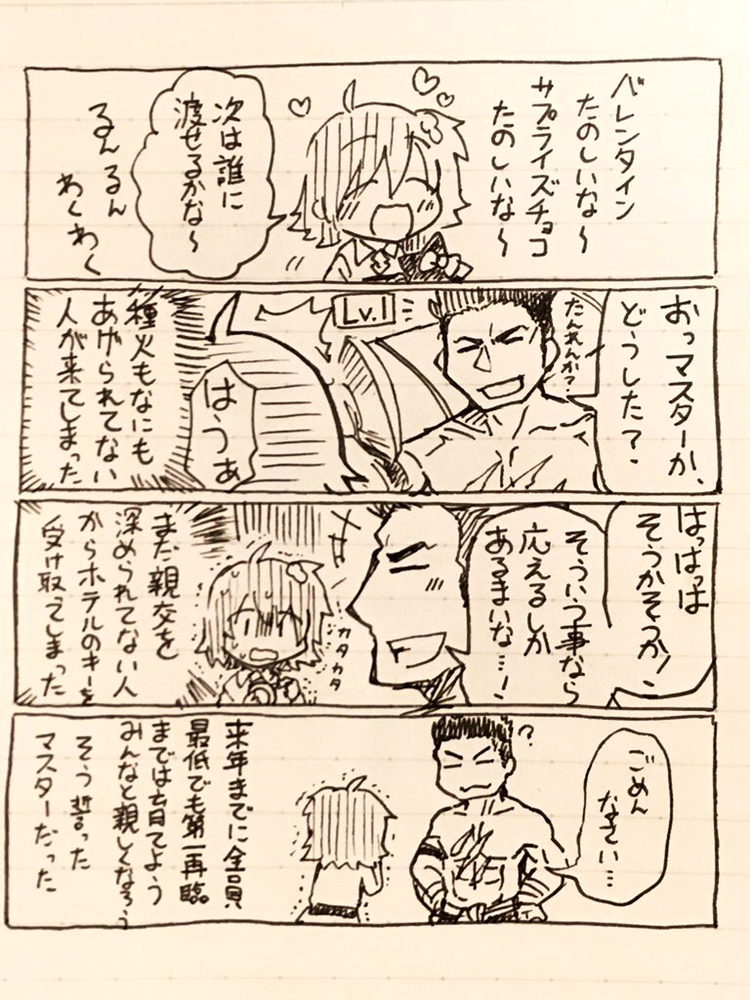 バレンタイン
たのしいな〜
サプライズチョコ
たのしいな〜
次は誰に
渡せるかな〜
るんるん
わくわく
おっマスターか、
どうした？
たんれんか？
Lv.1
はうあ
種火もなにも
あげられてない
人が来てしまった
はっはっは
そうかそうか！
そういう事なら
応えるしか
あるまいな…！
カタカタ
まだ親交を
深められてない人
からホテルのキーを
受け取ってしまった
ごめん
なさい…
？
来年までに全員
最低でも第一再臨
までは育てよう
みんなと親しくなろう
そう誓った
マスターだった